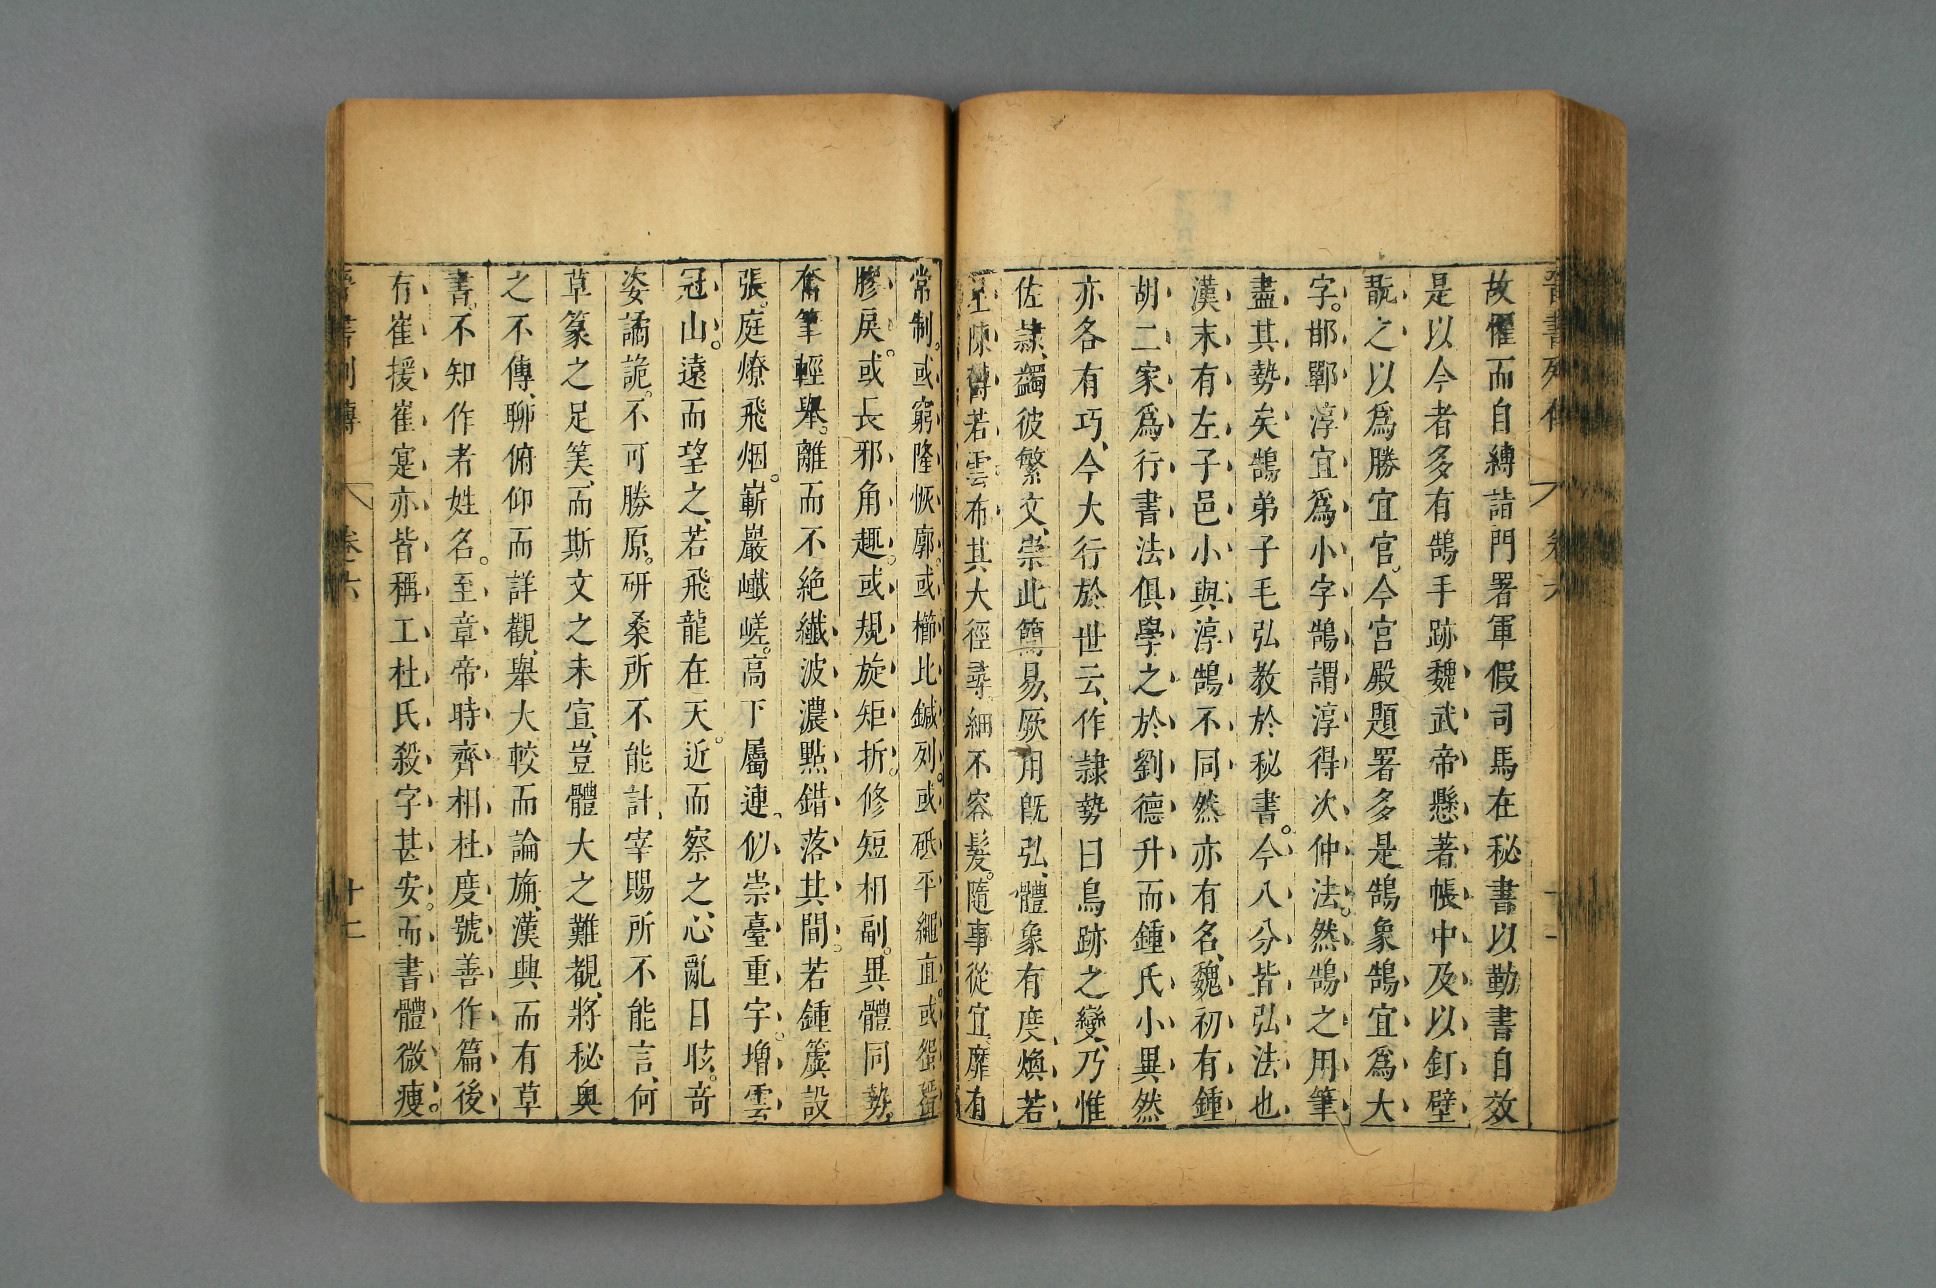 晉書列傳 卷六 十一
故懼而自縛詣門署軍假司馬在秘書以勤書自效
是以今者多有鵠手跡魏武帝懸著帳中及以釘壁
翫之以爲勝宜官。今宮殿題署多是鵠象鵠宜爲大
字。邯鄲淳宜爲小字鵠謂淳得次仲法。然鵠之用筆
盡其勢矣鵠弟子毛弘教於秘書。今八分皆弘法也
漢末有左子邑小與淳鵠不同然亦有名、魏初有鍾
胡二家爲行書法俱學之於劉德升而鍾氏小異然
亦各有巧、今大行於世云、作隷勢曰鳥跡之變、乃惟
佐隷、蠲彼繁文、崇此簡易、厥用旣弘、體象有度、煥若
星陳、鬱若雲布、其大徑尋、細不容髮。隨事從宜、靡有
常制。或窮隆恢廓。或櫛比鍼列。或砥平繩直。或蜿蜒
膠戾。或長邪角趣。或規旋矩折。修短相副。異體同勢。
奮筆輕舉。離而不絶、纖波濃點、錯落其間。若鍾簴設
張。庭燎飛烟。嶄巖嶻嵯。高下屬連。似崇臺重宇。增雲
冠山。遠而望之、若飛龍在天。近而察之、心亂目眩。奇
姿譎詭。不可勝原。研桑所不能計、宰賜所不能言、何
草篆之足筭、而斯文之未宣、豈體大之難覩、將秘奥
之不傳、聊俯仰而詳觀、舉大較而論旃、漢興而有草
書。不知作者姓名。至章帝時齊相杜度號善作篇後
有崔援崔寔亦皆稱工杜氏殺字甚安。而書體微瘦。
晉書列傳 卷六 十二